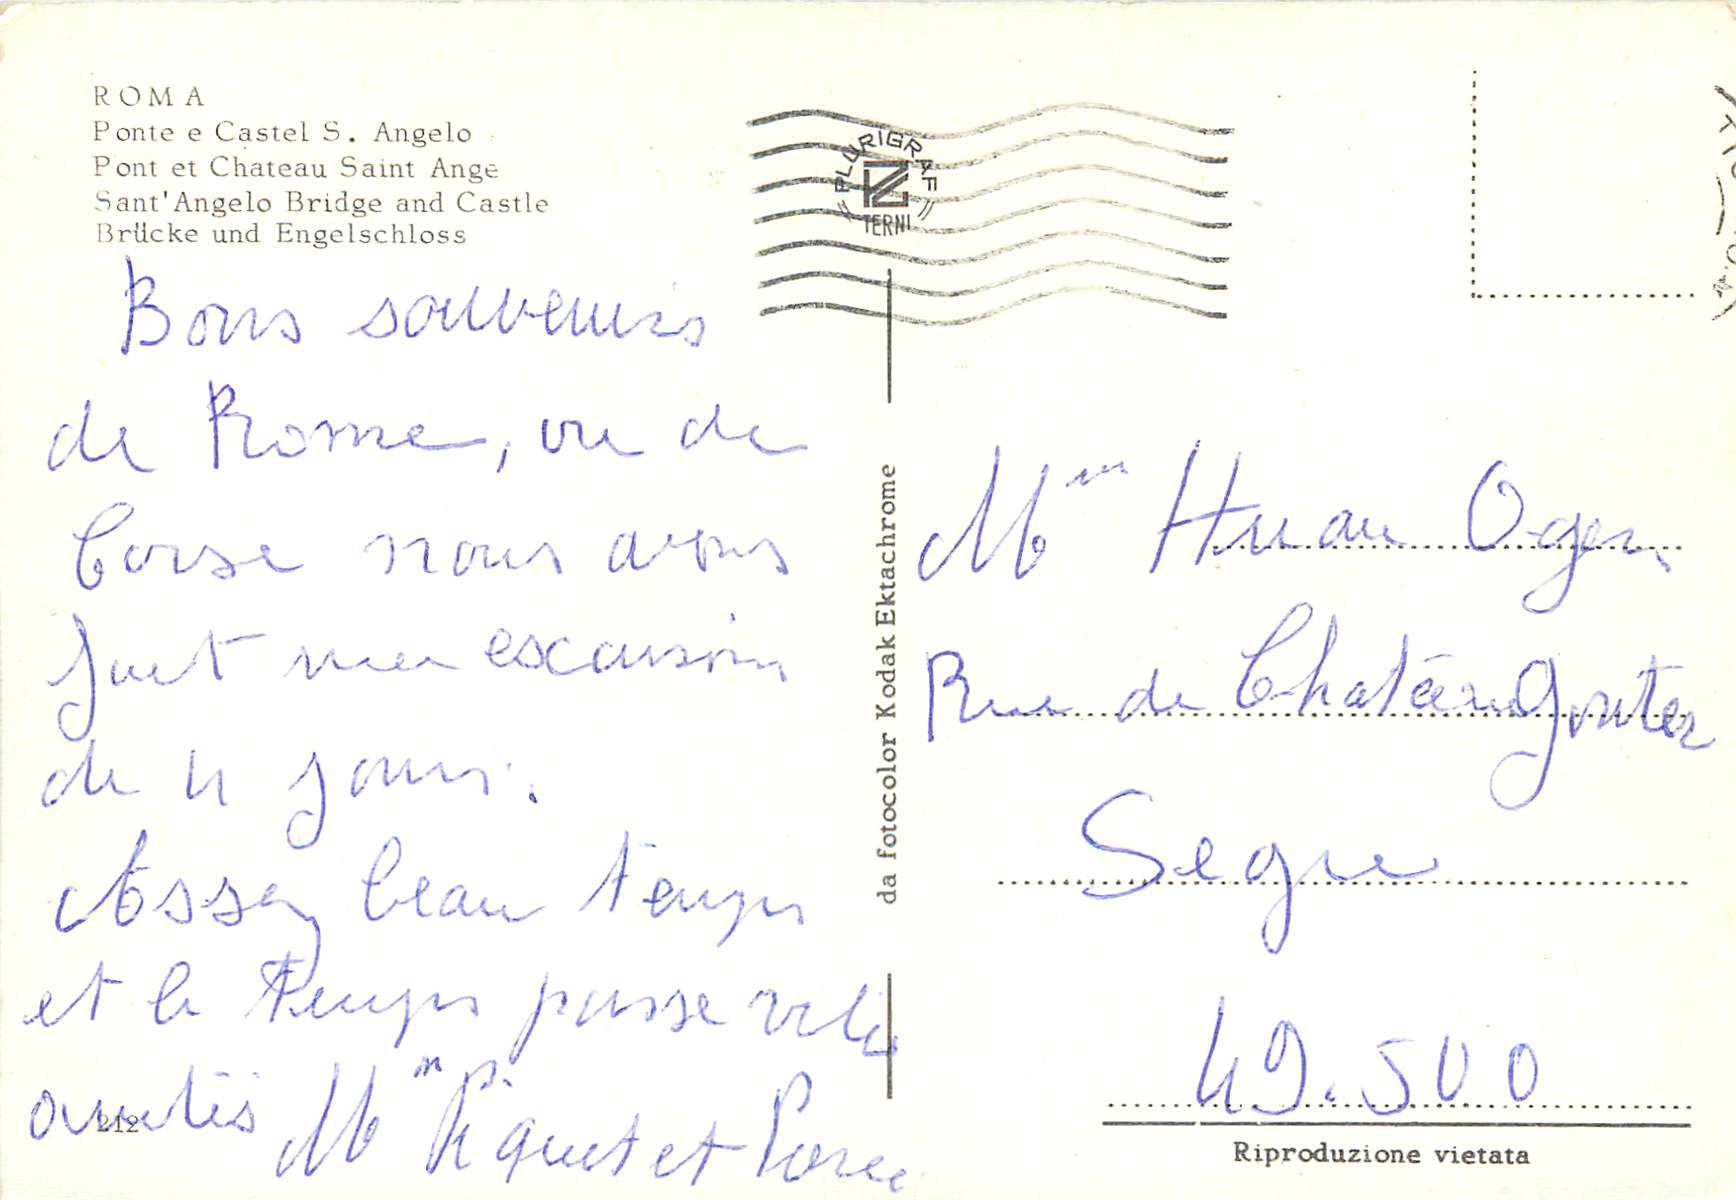 ROMA
Ponte e Castel S. Angelo
Pont et Chateau Saint Ange
Sant'Angelo Bridge and Castle
Brücke und Engelschloss
PLURIGRAF
TERNI
Bons souvenirs
de Rome, vu de
Corse nous avons
fait une excursion
de 4 jours.
Assez beau temps
et le temps passe vite
amitiés Mme Piquet et
212
da fotocolor Kodak Ektachrome
Mme Oger
Rue de Château Gontier
Segre
49.500
Riproduzione vietata